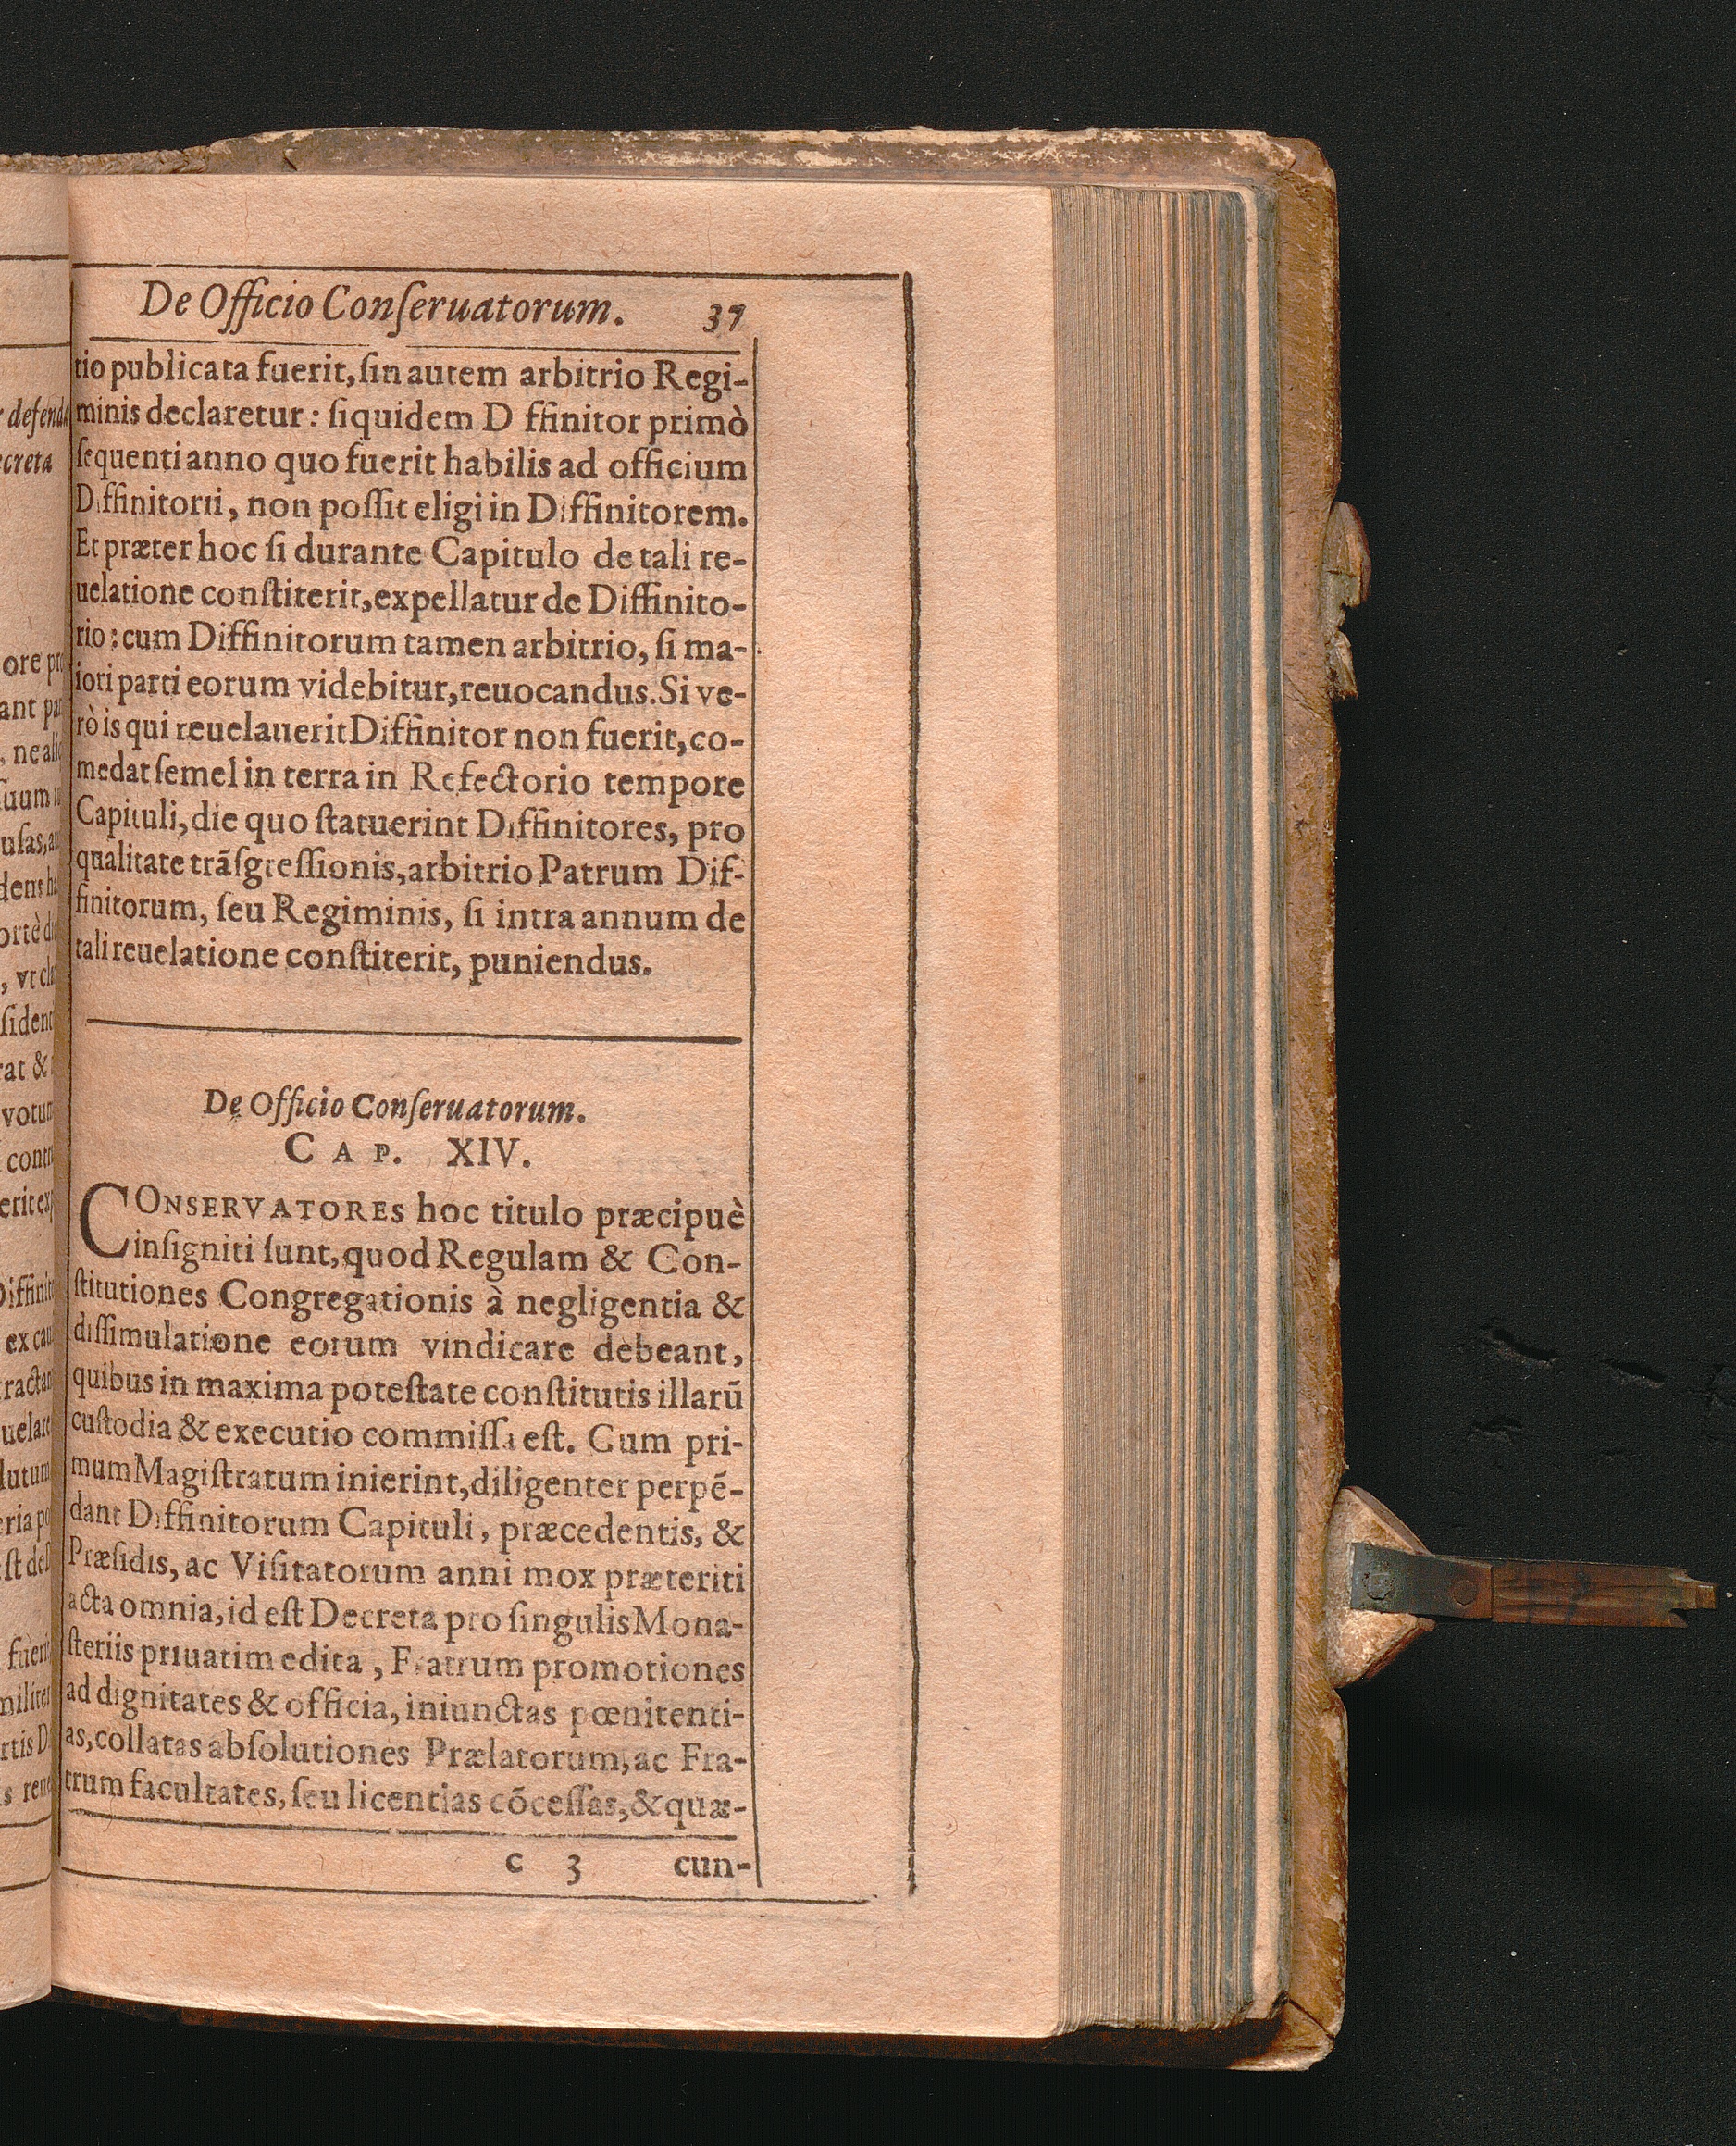 De Officio Conſeruatorum. 37
tio publicata fuerit, ſin autem arbitrio Regi-
minis declaretur: ſiquidem D ffinitor primò
ſequenti anno quo fuerit habilis ad officium
Diffinitorii, non poſſit eligi in Diffinitorem.
Et præter hoc ſi durante Capitulo de tali re-
uelatione conſtiterit, expellatur de Diffinito-
rio: cum Diffinitorum tamen arbitrio, ſi ma-
iori parti eorum videbitur, reuocandus. Si ve-
rò is qui reuelauerit Diffinitor non fuerit, co-
medat ſemel in terra in Refectorio tempore
Capituli, die quo ſtatuerint Diffinitores, pro
qualitate trãſgreſſionis, arbitrio Patrum Dif-
finitorum, ſeu Regiminis, ſi intra annum de
tali reuelatione conſtiterit, puniendus.
De Officio Conſeruatorum.
CAP. XIV.
CONSERVATORES hoc titulo præcipuè
inſigniti ſunt, quod Regulam & Con-
ſtitutiones Congregationis à negligentia &
diſſimulatione eorum vindicare debeant,
quibus in maxima poteſtate conſtitutis illarũ
cuſtodia & executio commiſſa eſt. Cum pri-
mum Magiſtratum inierint, diligenter perpẽ-
dant Diffinitorum Capituli, præcedentis, &
Præſidis, ac Viſitatorum anni mox præteriti
acta omnia, id eſt Decreta pro ſingulis Mona-
ſteriis priuatim edita, Fratrum promotiones
ad dignitates & officia, iniunctas pœnitenti-
as, collatas abſolutiones Prælatorum, ac Fra-
trum facultates, ſeu licentias cõceſſas, & quæ-
c 3 cun-